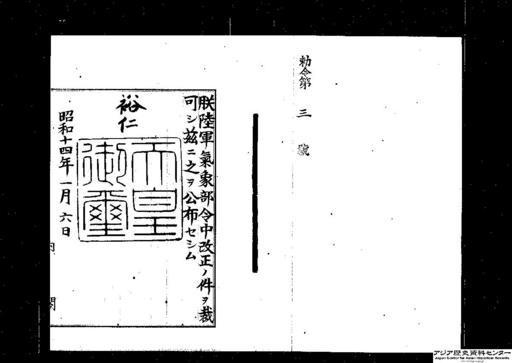 勅令第三號
朕陸軍氣象部令中改正ノ件ヲ裁
可シ茲ニ之ヲ公布セシム
裕仁
天皇
御璽
昭和十四年一月六日
内閣
アジア歴史資料センター
Japan Center for Asian Historical Records